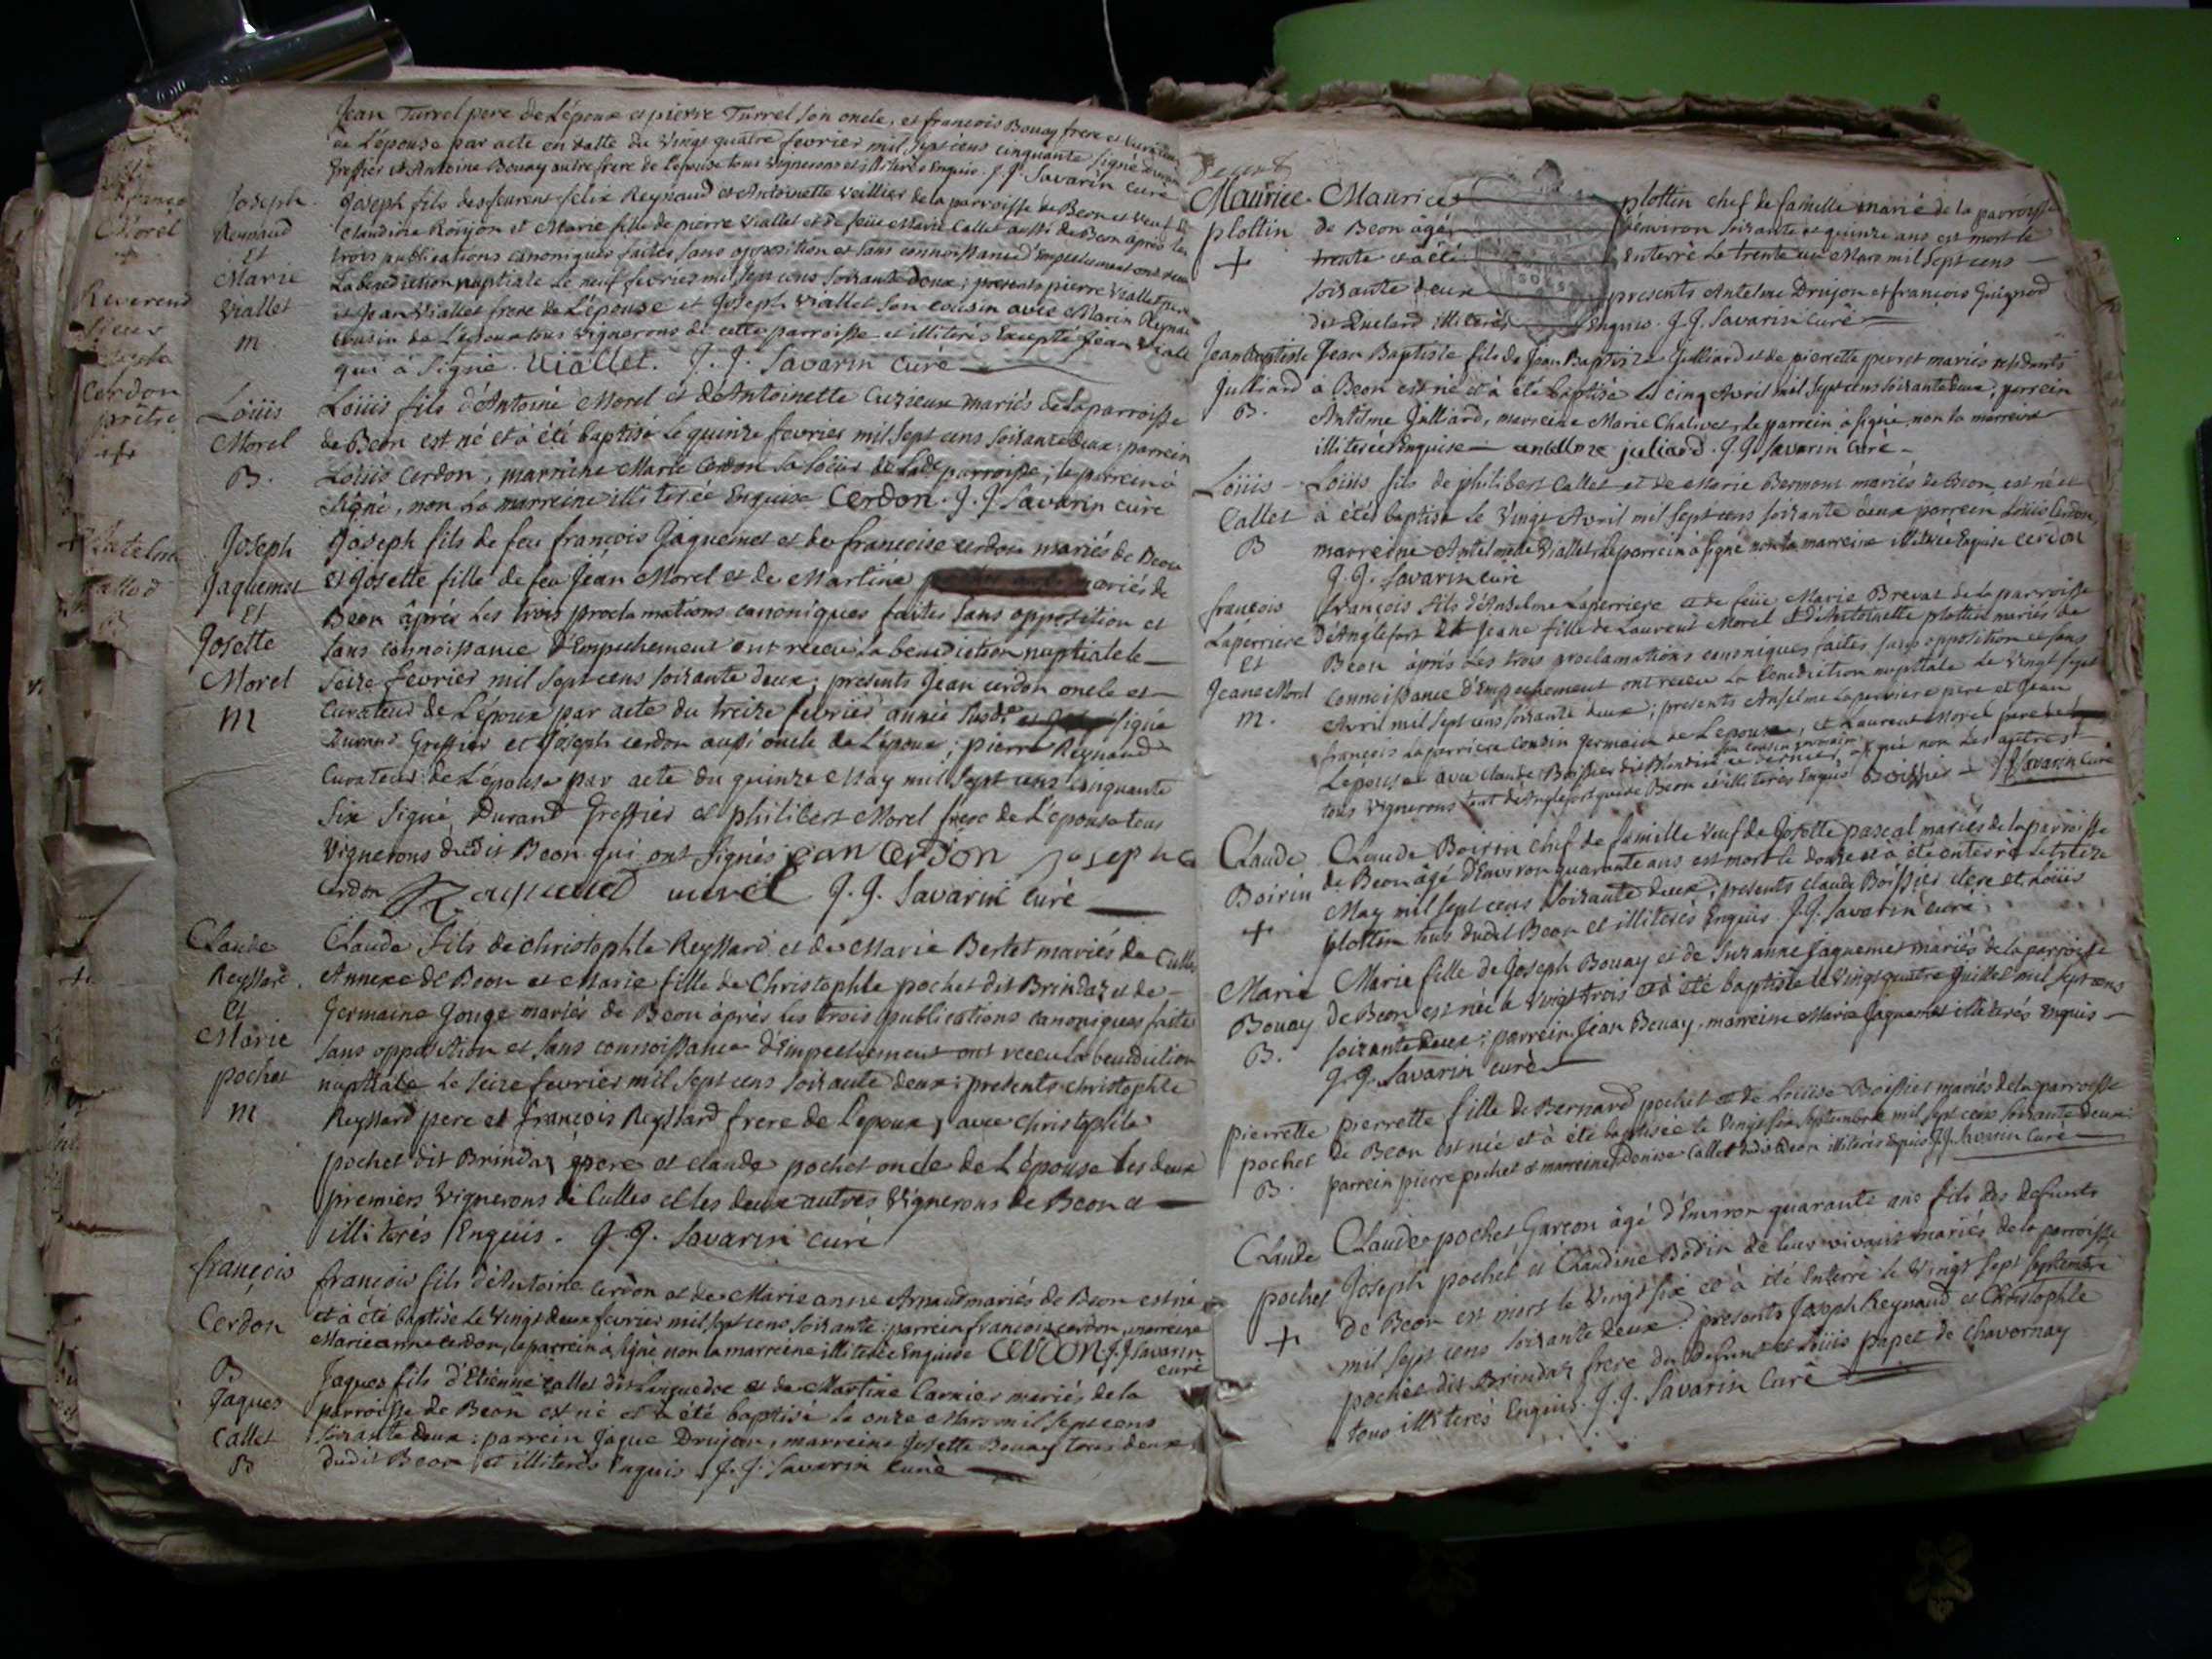 Jean Turrel pere de L'époux et pierre Turrel son oncle, et francois Bouay frere et
de L'épouse par acte en datte du vingt quatre fevrier mil sept cens cinquante signé
Greffier et Antoine Bouay autre frere de L'epouse tous vignerons et illiterés Enquis. J. J. Savarin curé
Joseph
Reynaud
Et
Marie
Viallet
m
Joseph fils des feu felix Reynaud et Antoinette veillier de la parroisse de Beon et veuf de
Claudine Ronjon et Marie fille de pierre Viallet et de feüe Marie Callet aussi de Beon après les
trois publications canoniques faites sans opposition et sans connoissance d'Empechement ont receu
La benediction nuptiale Le neuf fevrier mil sept cens soixante deux; presents pierre Viallet pere
et Jean Viallet frere de L'épouse et Joseph Viallet son cousin avec Marin Reynaud
cousin de L'epoux tous vignerons de cette parroisse et illiterés Excepté Jean Viallet
qui à signé. Viallet. J. J. Savarin curé
Loüis
Morel
B.
Loüis fils d'Antoine Morel et d'Antoinette Cuzieux mariés de la parroisse
de Beon est né et à été baptisé Le quinze fevrier mil sept cens soixante deux; parrein
Loüis Cerdon, marreine Marie Cerdon sa soeur de Lade parroisse; le parrein à
signé, non La marreine illiterée Enquise Cerdon. J. J. Savarin curé
Joseph
Jaquemet
Et
Josette
Morel
m
Joseph fils de feu francois Jaquemet et de francoise cerdon mariés de Beon
et Josette fille de feu Jean Morel et de Martine mariés de
Beon âprés Les trois proclamations canoniques faites sans opposition et
sans connoissance d'Empechement ont receu La benediction nuptiale le
seize fevrier mil sept cens soixante deux; presents Jean cerdon oncle et
Curateur de L'époux par acte du treize fevrier année susde signé
Durand Greffier et Joseph cerdon aussi oncle de L'époux; pierre Reynaud
Curateur de L'épouse par acte du quinze May mil sept cens cinquante
six signé Durand Greffier et philibert Morel frere de L'épouse tous
Vignerons dudit Beon qui ont signés jean Cerdon joseph
cerdon Reynaud morel J. J. Savarin curé
Claude
Reyssard
et
Marie
pochet
m
Claude fils de christophle Reyssard et de Marie Bertet mariés de Culles
Annexe de Beon et Marie fille de Christophle pochet dit Brindaz et de
Germaine Gouge mariés de Beon âprés les trois publications canoniques faites
sans opposition et sans connoissance d'Empechement ont receu la benediction
nuptiale Le seize fevrier mil sept cens soixante deux; presents christophle
Reyssard pere et françois Reyssard frere de L'epoux, avec christophle
pochet dit Brindaz pere et claude pochet oncle de L'épouse les deux
premiers vignerons de Culles et les deux autres vignerons de Beon et
illiterés Enquis. J. J. Savarin curé
françois
Cerdon
B
francois fils d'Antoine Cerdon et de Marieanne Arnaud mariés de Beon est né
et à été baptisé Le vingt deux fevrier mil sept cens soixante: parrein francois cerdon, marreine
Marieanne cerdon, le parrein à signé non la marreine illiterée Enquise Cerdon J. J. Savarin
curé
Jaques
Callet
B
Jaques fils d'Etienne Callet dit et de Martine Carnier mariés de la
parroisse de Beon est né et à été baptisé le onze Mars mil sept cens
soixante deux: parrein Jaque Drujon, marreine Josette Bouay tous deux
dudit Beon et illiterés Enquis. J. J. Savarin Curé
Maurice
plottin
+
Maurice plottin chef de famille marié de la parroisse
de Beon âgé d'environ soixante et quinze ans est mort le
trente et à été Enterré Le trente un Mars mil sept cens
soixante deux presents Antelme Drujon et francois Guignod
dit illiterés Enquis. J. J. Savarin Curé
Jean Baptiste
Julliard
B.
Jean Baptiste fils de Jean Baptiste Julliard et de pierrette perret mariés residents
à Beon est né et à été baptisé Le cinq Avril mil sept cens soixante deux; parrein
Antelme Julliard, marreine Marie Chalivet, Le parrein à signé, non la marreine
illiterée Enquise antelme juliard. J. J. Savarin Curé
Loüis
Callet
B
Loüis fils de philibert Callet et de Marie Bermont mariés de Beon est né et
à été baptisé Le vingt Avril mil sept cens soixante deux parrein Loüis Cerdon,
marreine Antelmede Viallet, Le parrein à signé non la marreine illiterée Enquise cerdon
J. J. Savarin curé
françois
Laperriere
Et
Jeane Morel
m.
françois fils d'Anselme Laperriere et de feüe Marie Brevat de la parroisse
d'Anglefort et Jeane fille de Laurent Morel et d'Antoinette plottin mariés de
Beon âprés Les trois proclamations canoniques faites sans opposition et sans
connoissance d'Empechement ont receu La benediction nuptiale Le vingt sept
Avril mil sept cens soixante deux; presents Anselme Laperriere pere et Jean
françois Laperriere cousin germain de L'epoux, et Laurent Morel pere de
L'epouse avec claude Boissier dit Blondin son cousin germain ce dernier à signé non Les autres
tous vignerons tant d'Anglefort que de Beon et illiterés Enquis Boissier J. J. Savarin Curé
Claude
Boirin
+
Claude Boirin chef de famille veuf de Josette pascal mariés de la parroisse
de Beon âgé d'Environ quarante ans est mort le douze et à été enterré Le treize
May mil sept cens soixante deux; presents claude Boissier clere et Loüis
plottin tous dudit Beon et illiterés Enquis. J. J. Savarin curé
Marie
Bouay
B.
Marie fille de Joseph Bouay et de Suzanne Jaquemet mariés de la parroisse
de Beon est née le vingt trois et à été baptisée le vingt quatre Juillet mil sept cens
soixante deux; parrein Jean Bouay, marreine Marie Jaquemet illiterés Enquis
J. J. Savarin curé
pierrette
pochet
B.
pierrette fille de Bernard pochet et de Loüise Boissier mariés de la parroisse
de Beon est née et à été baptisée le vingt six septembre mil sept cens soixante deux
parrein pierre pochet et marreine Denise Callet dudit Beon illiterés Enquis J. J. Savarin Curé
Claude
pochet
+
Claude pochet Garcon âgé d'Environ quarante ans fils des defunts
Joseph pochet et Claudine Bodin de leur vivant mariés de la parroisse
de Beon est mort le vingt six et à été Enterré le vingt sept septembre
mil sept cens soixante deux: presents Joseph Reynaud et Christophle
pochet dit Brindaz frere du defunt et Loüis papet de Chavornay
tous illiterés Enquis. J. J. Savarin Curé